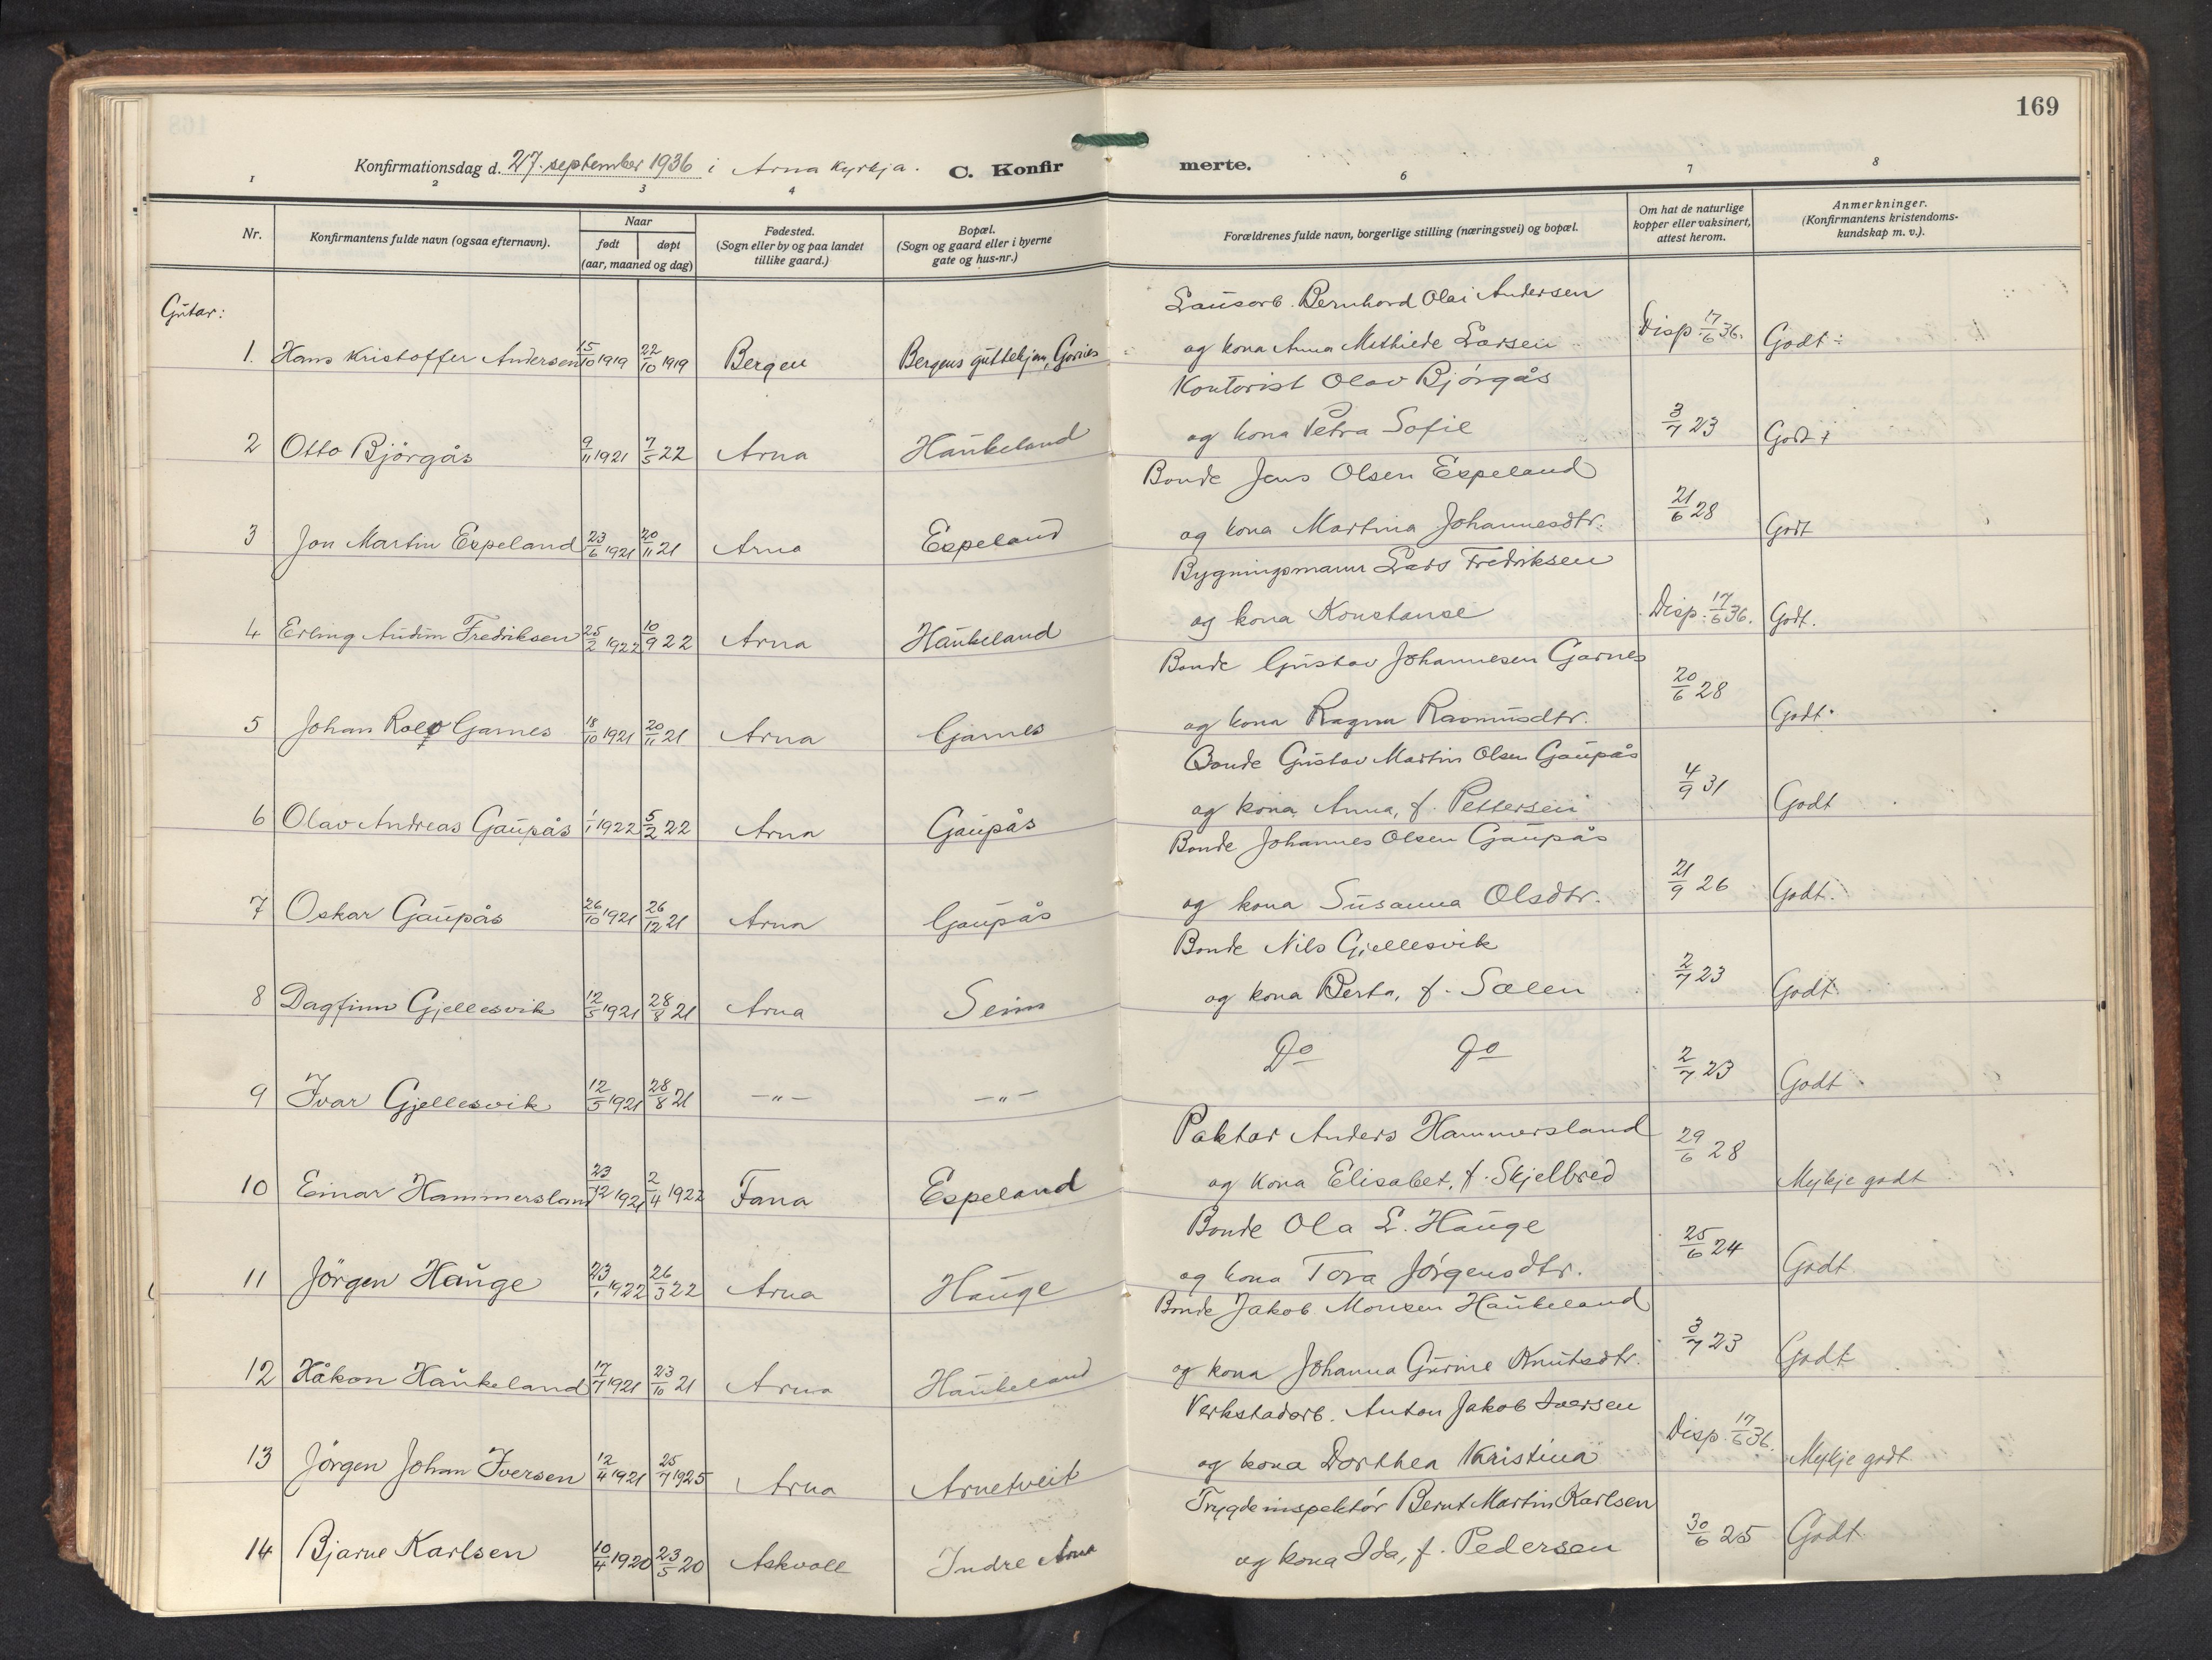 169
Konfirmationsdag d. 27. september 1936 i Arna kyrkja. C. Konfir merte.
1 2 3 4 6 7 8
Nr.
Konfirmantens fulde navn (ogsaa efternavn).
Naar
født døpt
(aar, maaned og dag)
Fødested.
(Sogn eller by og paa landet
tillike gaard.)
Bopæl.
(Sogn og gaard eller i byerne
gate og hus-nr.)
Forældrenes fulde navn, borgerlige stilling (næringsvei) og bopæl.
Om hat de naturlige
kopper eller vaksinert,
attest herom.
Anmerkninger.
(Konfirmantens kristendoms-
kundskap m. v.).
Gutar:
Lausarb. Bernhard Olai Andersen
1. Hans Kristoffer Andersen 15/10 1919 22/10 1919 Bergen Bergens guttehjem, Garnes og kona Anna Mathilde Larsen Disp. 17/6 36. Godt
Kontorist Olav Bjørgås
2 Otto Bjørgås 9/11 1921 7/5 22 Arna Haukeland og kona Petra Sofie 3/7 23 Godt
Bonde Jens Olsen Espeland
3 Jon Martin Espeland 23/6 1921 20/11 21 Arna Espeland og kona Martina Johannesdtr. 21/6 28 Godt
Bygningsmann Lars Fredriksen
4 Erling Audun Fredriksen 25/2 1922 10/9 22 Arna Haukeland og kona Konstanse Disp. 17/6 36. Godt.
Bonde Gustav Johannesen Garnes
5 Johan Rolf Garnes 18/10 1921 20/11 21 Arna Garnes og kona Ragna Rasmusdtr. 20/6 28 Godt.
Bonde Gustav Martin Olsen Gaupås
6 Olav Andreas Gaupås 1/1 1922 5/2 22 Arna Gaupås og kona Anna, f. Pettersen 4/9 31 Godt
Bonde Johannes Olsen Gaupås
7 Oskar Gaupås 26/10 1921 26/12 21 Arna Gaupås og kona Susanna Olsdtr. 21/9 26 Godt.
Bonde Nils Gjellesvik
8 Dagfinn Gjellesvik 12/5 1921 28/8 21 Arna Seim og kona Berta, f. Sælen 2/7 23 Godt.
9 Ivar Gjellesvik 12/5 1921 28/8 21 —"— —"— Do Do 2/7 23 Godt
Paktar Anders Hammersland
10 Einar Hammersland 23/12 1921 2/4 1922 Fana Espeland og kona Elisabet, f. Skjelbred 29/6 28 Mykje godt
Bonde Ola L. Hauge
11 Jørgen Hauge 23/1 1922 26/3 22 Arna Hauge og kona Tora Jørgensdtr. 25/6 24 Godt
Bonde Jakob Monsen Haukeland
12 Håkon Haukeland 17/7 1921 23/10 21 Arna Haukeland og kona Johanna Gurine Knutsdtr. 3/7 23 Godt
Verkstadarb. Anton Jakob Iversen
13 Jørgen Johan Iversen 12/4 1921 25/7 1925 Arna Arnetveit og kona Dorthea Kristina Disp. 17/6 36. Mykje godt
Trygdeinspektør Bernt Martin Karlsen
14 Bjarne Karlsen 10/4 1920 23/5 20 Askvoll Indre Arna og kona Ida, f. Pedersen 30/6 25 Godt